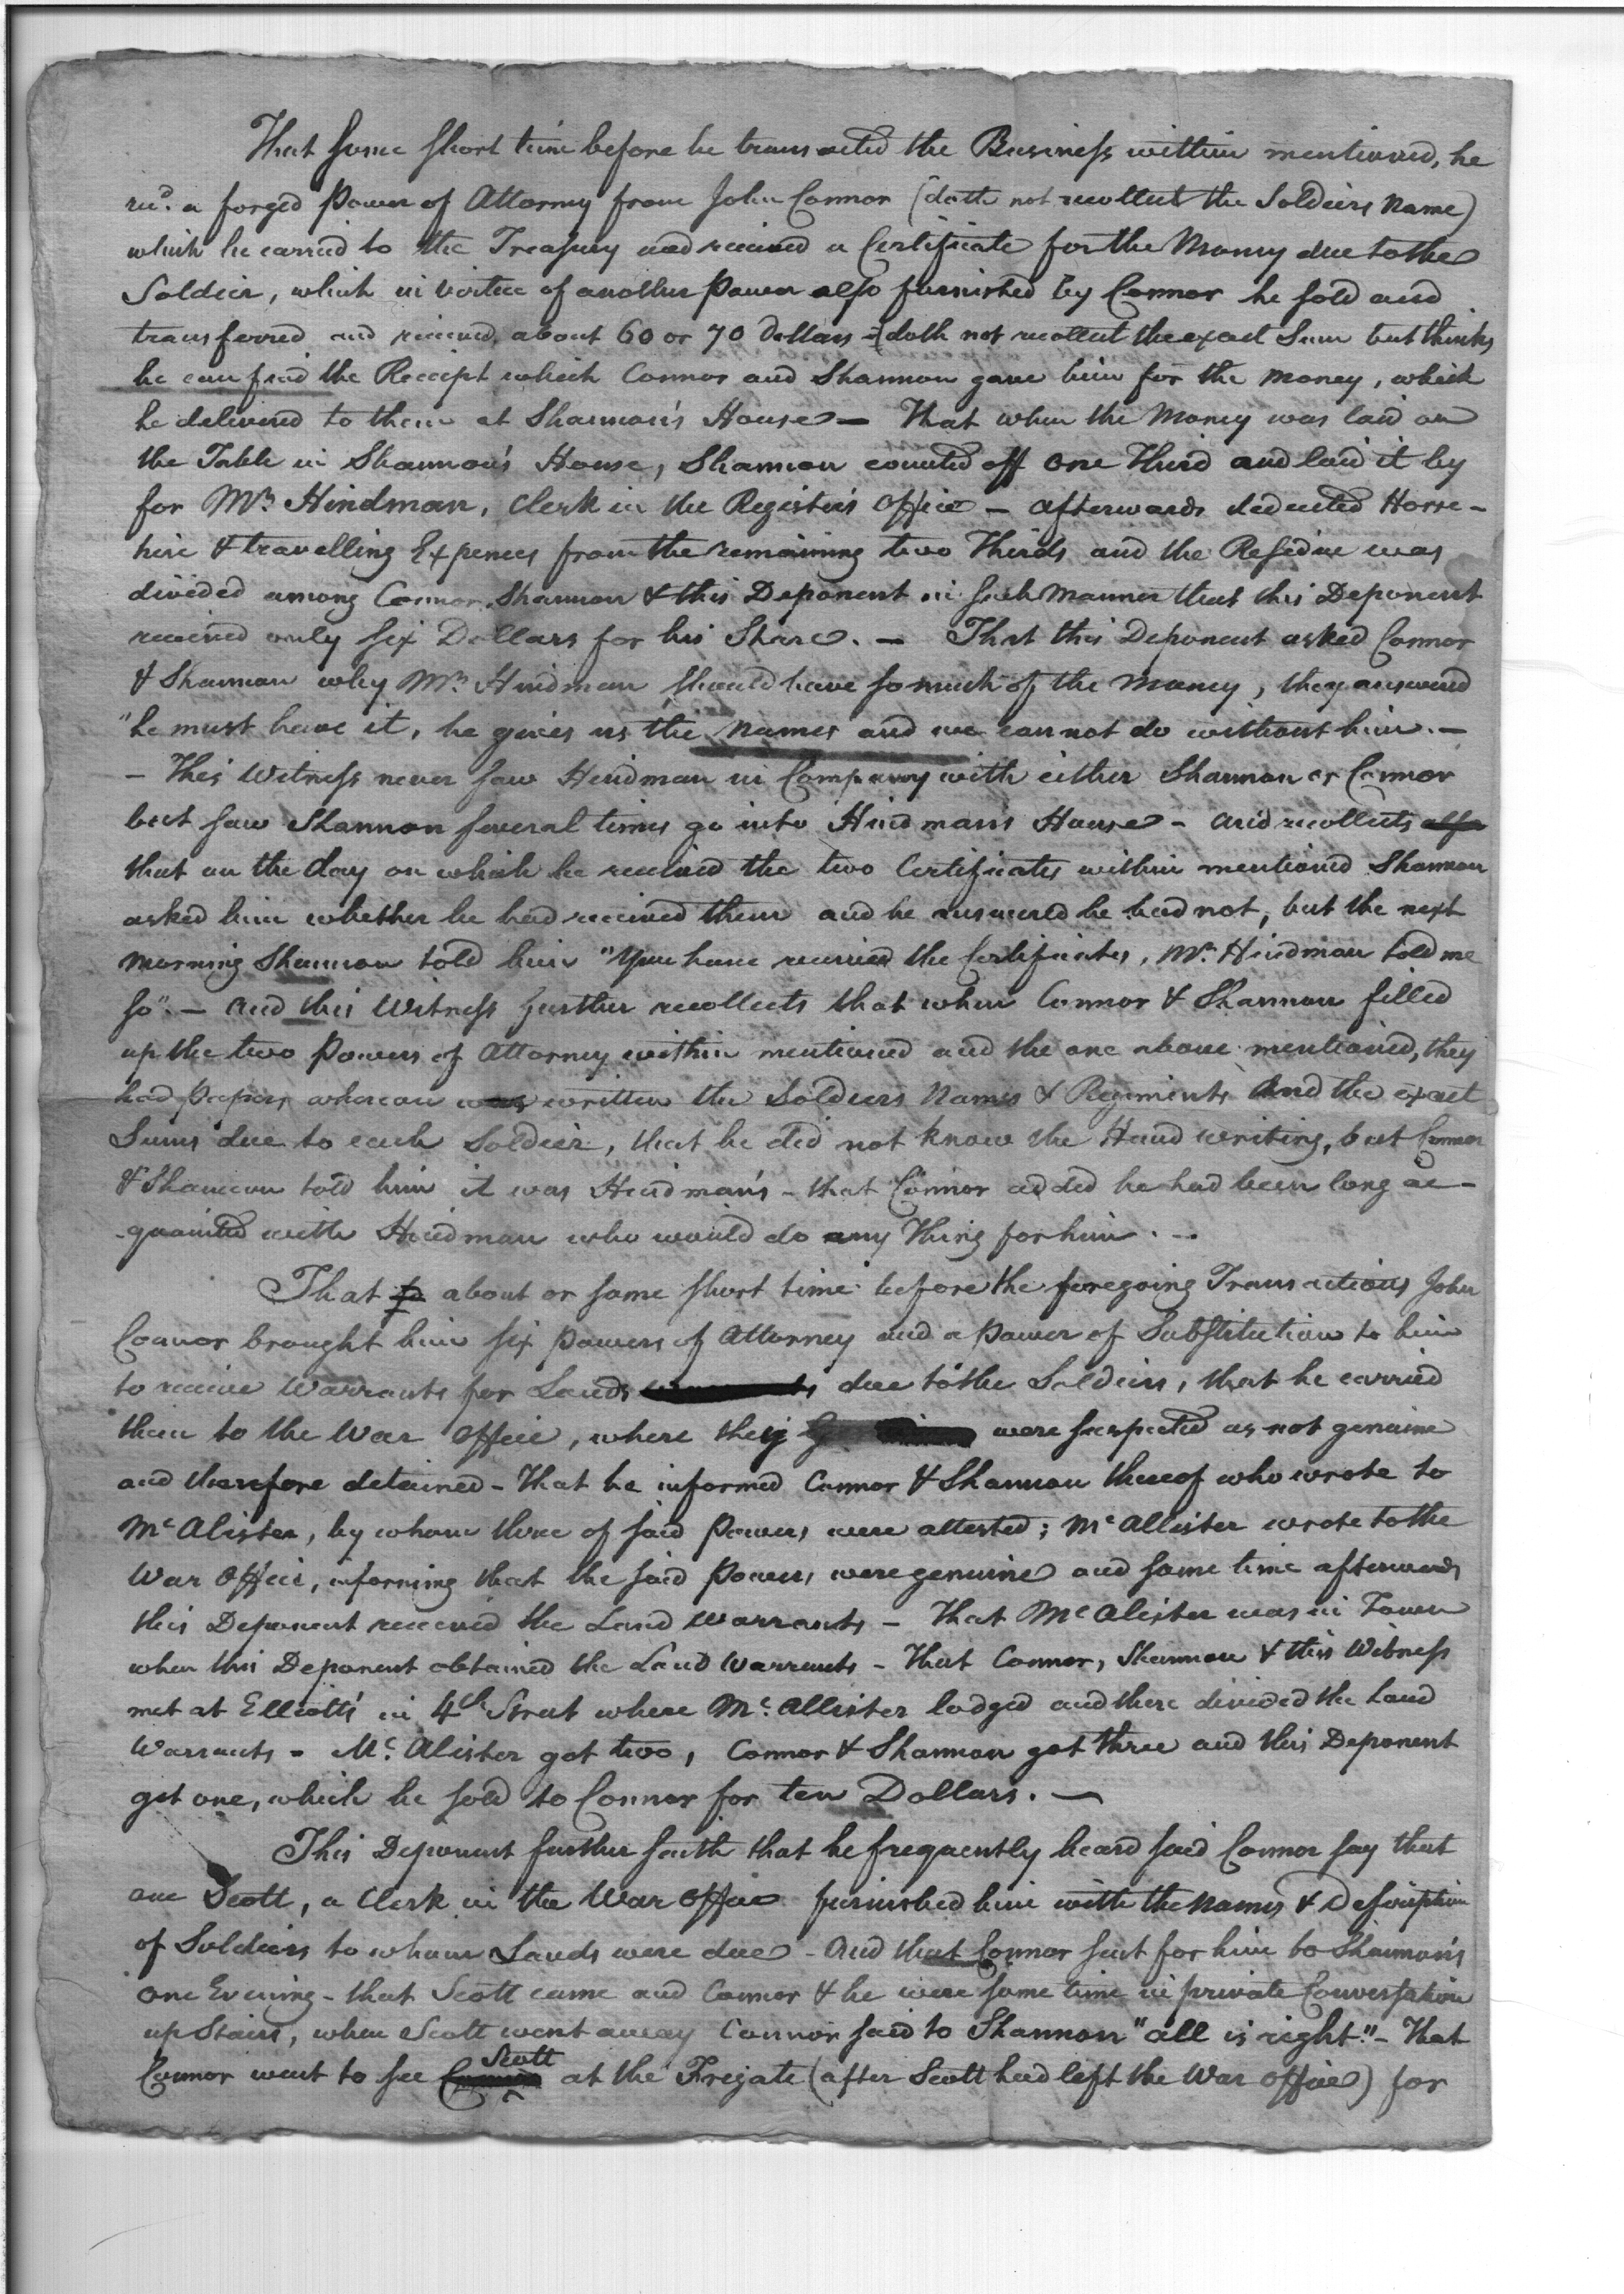 That some short time before he transacted the Business within mentioned, he
recd. a forged Power of Attorney from John Connor (doth not recollect the Soldiers Name)
which he carried to the Treasury and received a Certificate for the Money due to the
Soldier, which in virtue of another Power also furnished by Connor he sold and
transferred and received about 60 or 70 Dollars - (doth not recollect the exact Sum but thinks
he can find the Receipt which Connor and Shannon gave him for the Money, which
he delivered to them at Shannon's House — That when the Money was laid on
the Table in Shannon's House, Shannon counted off one Third and laid it by
for Mr. Hindman, Clerk in the Register's Office - afterwards deducted Horse-
hire & travelling Expences from the remaining two Thirds and the Residue was
divided among Connor, Shannon & this Deponent in such Manner that this Deponent
received only six Dollars for his Share. — That this Deponent asked Connor
& Shannon why Mr. Hindman should have so much of the Money, they answered
"he must have it, he gives us the Names and we cannot do without him. —
- This Witness never saw Hindman in Company with either Shannon or Connor
but saw Shannon several times go into Hindman's House - and recollects also
that on the day on which he received the two Certificates within mentioned Shannon
asked him whether he had received them and he answered he had not, but the next
Morning Shannon told him "You have received the Certificates, Mr. Hindman told me
so". - and this Witness further recollects that when Connor & Shannon filled
up the two Powers of Attorney within mentioned and the one above mentioned, they
had Papers whereon was written the Soldiers Names & Regiments And the exact
Sums due to each Soldier, that he did not know the Hand writing, but Connor
& Shannon told him it was Hindman's - that Connor added he had been long ac-
quainted with Hindman who would do any Thing for him. -
That about or some short time before the foregoing Transactions John
Connor brought him six Powers of Attorney and a Power of Substitution to him
to receive Warrants for Lands due to the Soldiers, that he carried
them to the War Office, where they were suspected as not genuine
and therefore detained - That he informed Connor & Shannon thereof who wrote to
McAlister, by whom three of said Powers were attested; McAllister wrote to the
War Office, informing that the said Powers were genuine and some time afterwards
this Deponent received the Land Warrants - That McAlister was in Town
when this Deponent obtained the Land Warrants - That Connor, Shannon & this Witness
met at Elliott's in 4th Street where Mc.Allister lodged and there divided the Land
Warrants - Mc.Alister got two, Connor & Shannon got three and this Deponent
got one, which he sold to Connor for ten Dollars. —
This Deponent further saith that he frequently heard said Connor say that
one Scott, a Clerk in the War Office furnished him with the Names & Description
of Soldiers to whom Lands were due - And that Connor sent for him to Shannon's
one Evening - that Scott came and Connor & he were some time in private Conversation
up Stairs, when Scott went away Connor said to Shannon "all is right." - That
Connor went to see Scott at the Fregate (after Scott had left the War Office) for